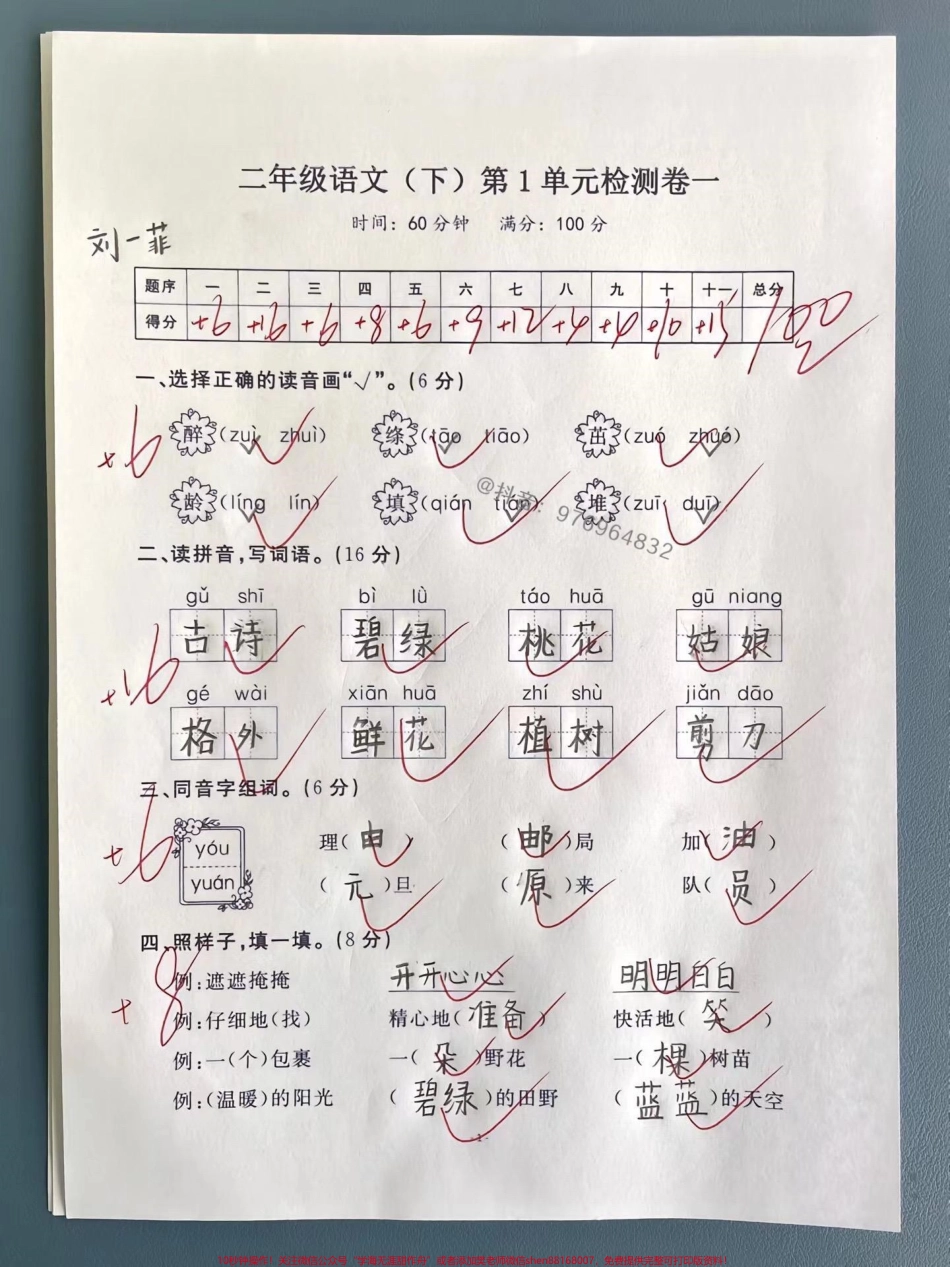 二年级语文（下）第1单元检测卷一
时间：60分钟 满分：100分
刘一菲
题序 一 二 三 四 五 六 七 八 九 十 十一 总分
得分 +6 +16 +6 +8 +6 +9 +12 +4 +4 +10 +15 100
一、选择正确的读音画“√”。（6分）
+6
醉（zuì zhuì） 绦（tāo tiāo） 茁（zuó zhuó）
龄（líng lín） 填（qián tián） 堆（zuī duī）
@抖音：976964832
二、读拼音，写词语。（16分）
gǔ shī bì lǜ táo huā gū niang
古诗 碧绿 桃花 姑娘
+16
gé wài xiān huā zhí shù jiǎn dāo
格外 鲜花 植树 剪刀
三、同音字组词。（6分）
+6
yóu 理（由） （邮）局 加（油）
yuán （元）旦 （原）来 队（员）
四、照样子，填一填。（8分）
+8
例：遮遮掩掩 开开心心 明明白白
例：仔细地（找） 精心地（准备） 快活地（笑）
例：一（个）包裹 一（朵）野花 一（棵）树苗
例：（温暖）的阳光 （碧绿）的田野 （蓝蓝）的天空
-1-